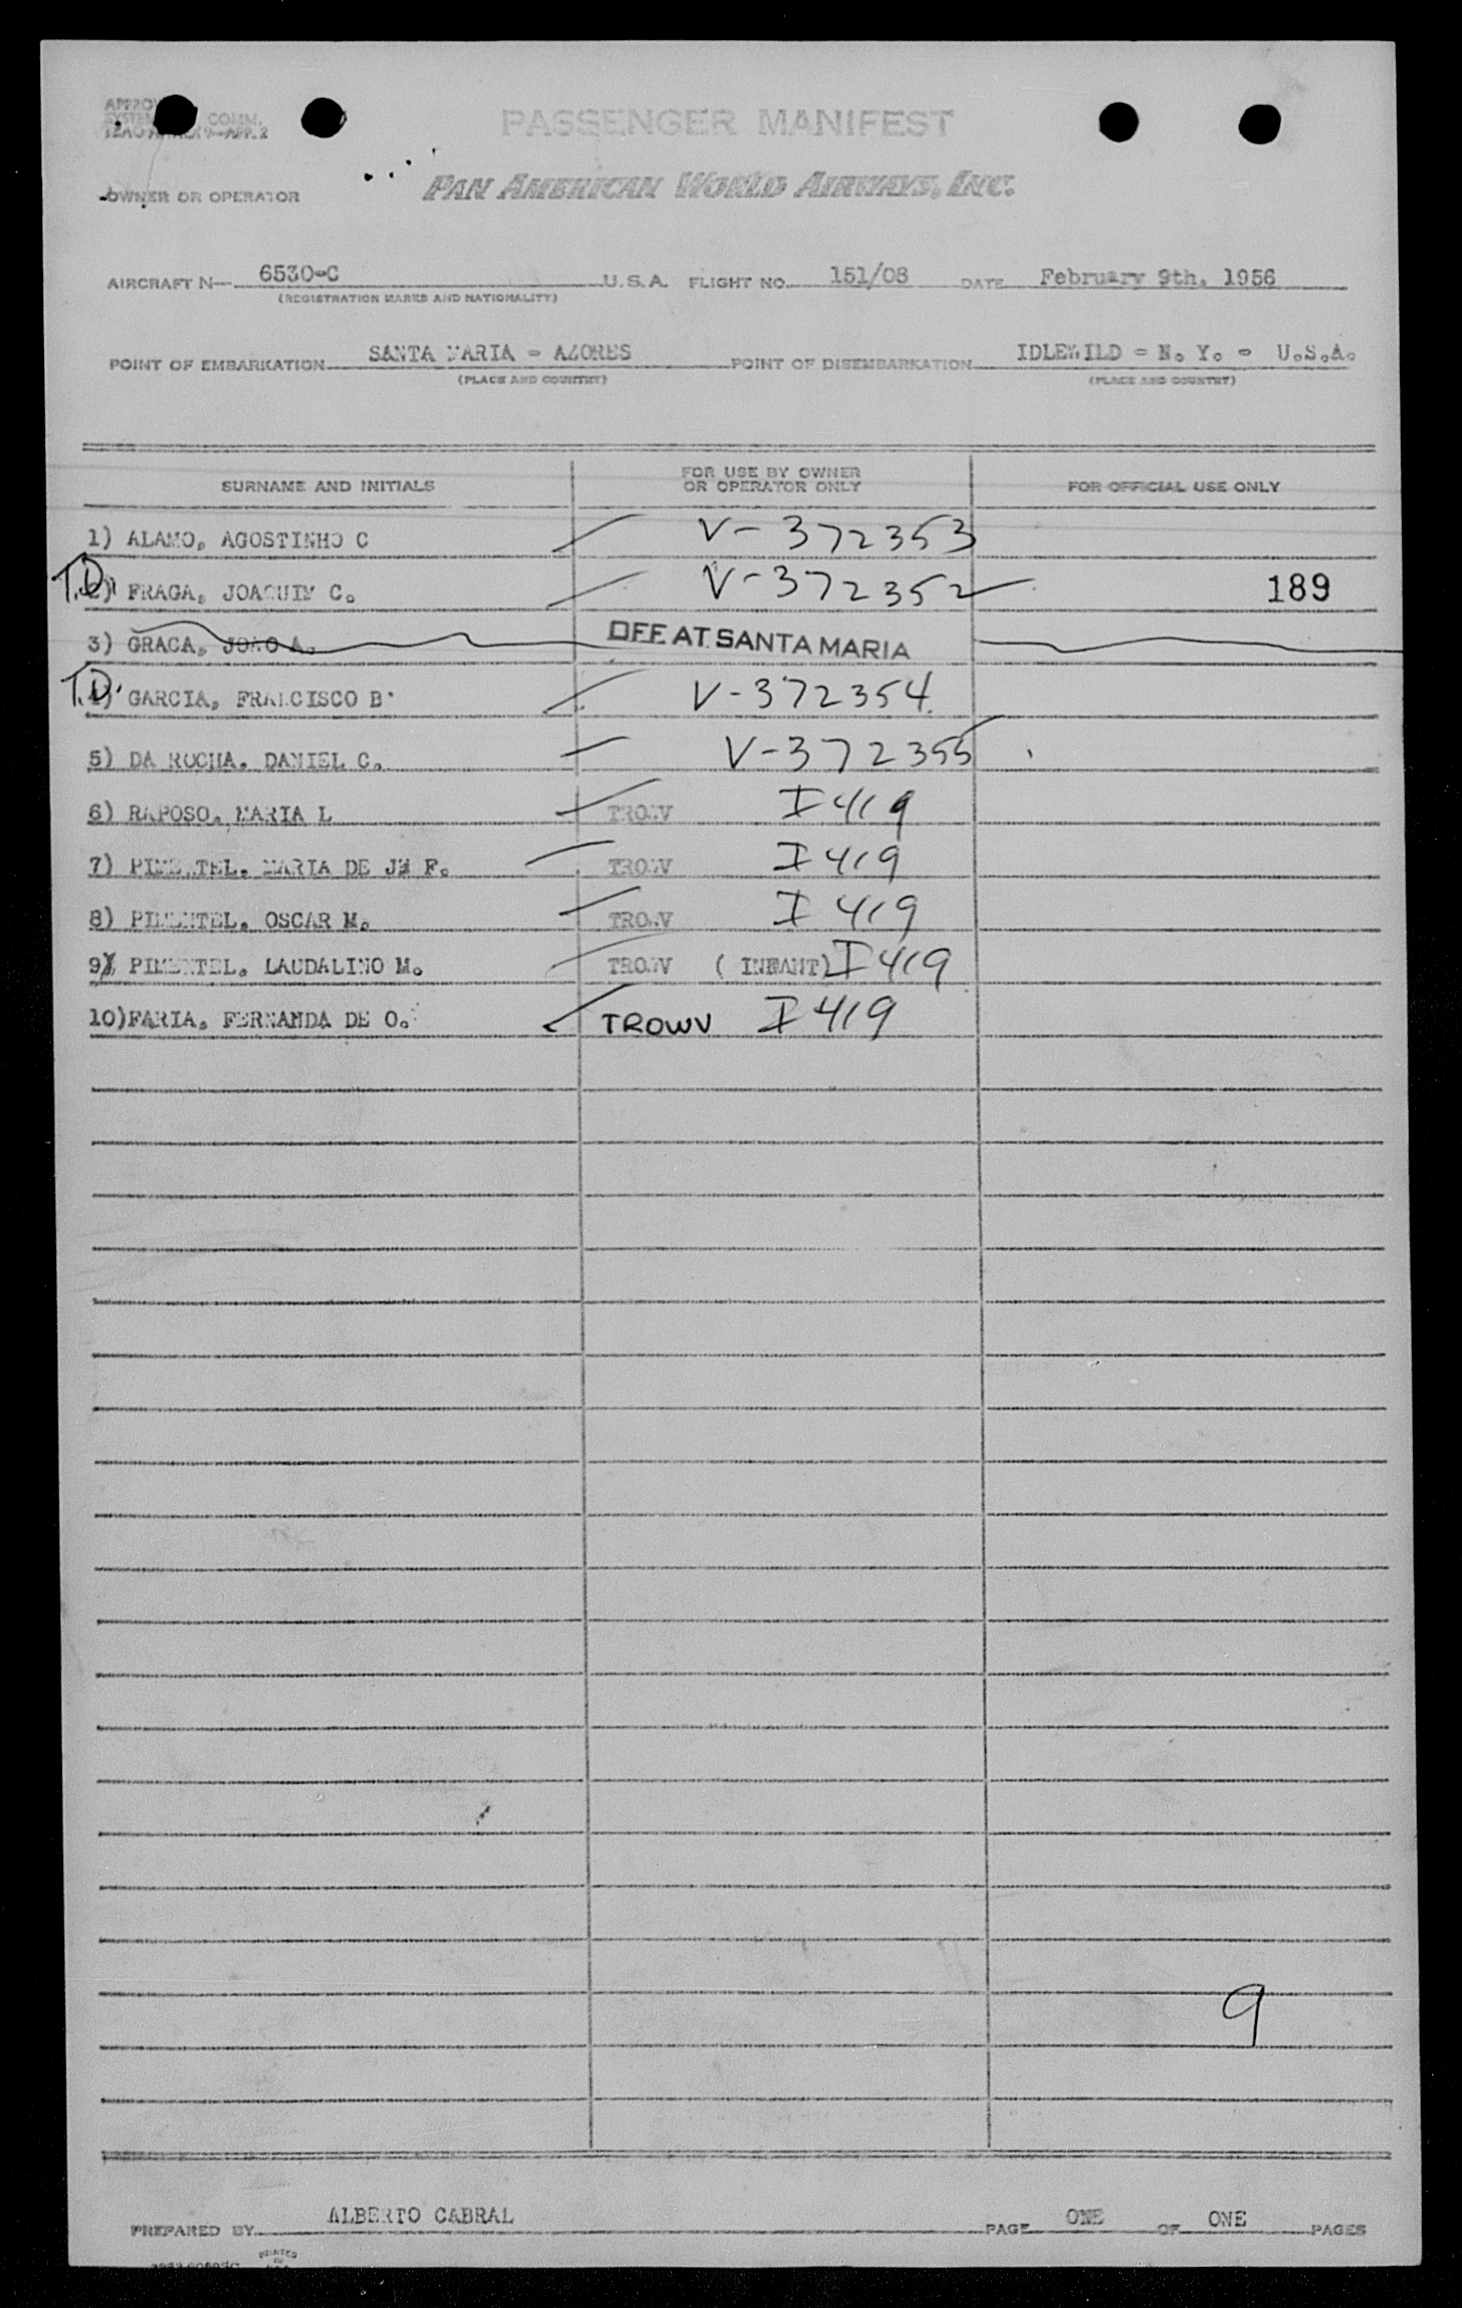 PASSENGER MANIFEST
COMM.
OWNER OR OPERATOR PAN AMERICAN WORLD AIRWAYS, INC.
AIRCRAFT N— 6530-C U.S.A. FLIGHT NO. 151/08 DATE February 9th. 1956
(REGISTRATION MARKS AND NATIONALITY)
POINT OF EMBARKATION SANTA MARIA - AZORES POINT OF DISEMBARKATION IDLEWILD - N. Y. - U.S.A.
(PLACE AND COUNTRY) (PLACE AND COUNTRY)
SURNAME AND INITIALS FOR USE BY OWNER OR OPERATOR ONLY FOR OFFICIAL USE ONLY
1) ALAMO, AGOSTINHO C V-372353
T.D. 2) FRAGA, JOAQUIM C. V-372352 189
3) GRACA, JOAO A. OFF AT SANTA MARIA
T.D. 4) GARCIA, FRANCISCO B. V-372354
5) DA ROCHA. DANIEL C. V-372355
6) RAPOSO. MARIA L TROWV I 419
7) PIMENTEL. MARIA DE JE F. TROWV I 419
8) PIMENTEL. OSCAR M. TROWV I 419
9) PIMENTEL. LAUDALINO M. TROWV (INFANT) I 419
10)FARIA, FERNANDA DE O. TROWV I 419
9
PREPARED BY ALBERTO CABRAL PAGE ONE OF ONE PAGES
PRINTED